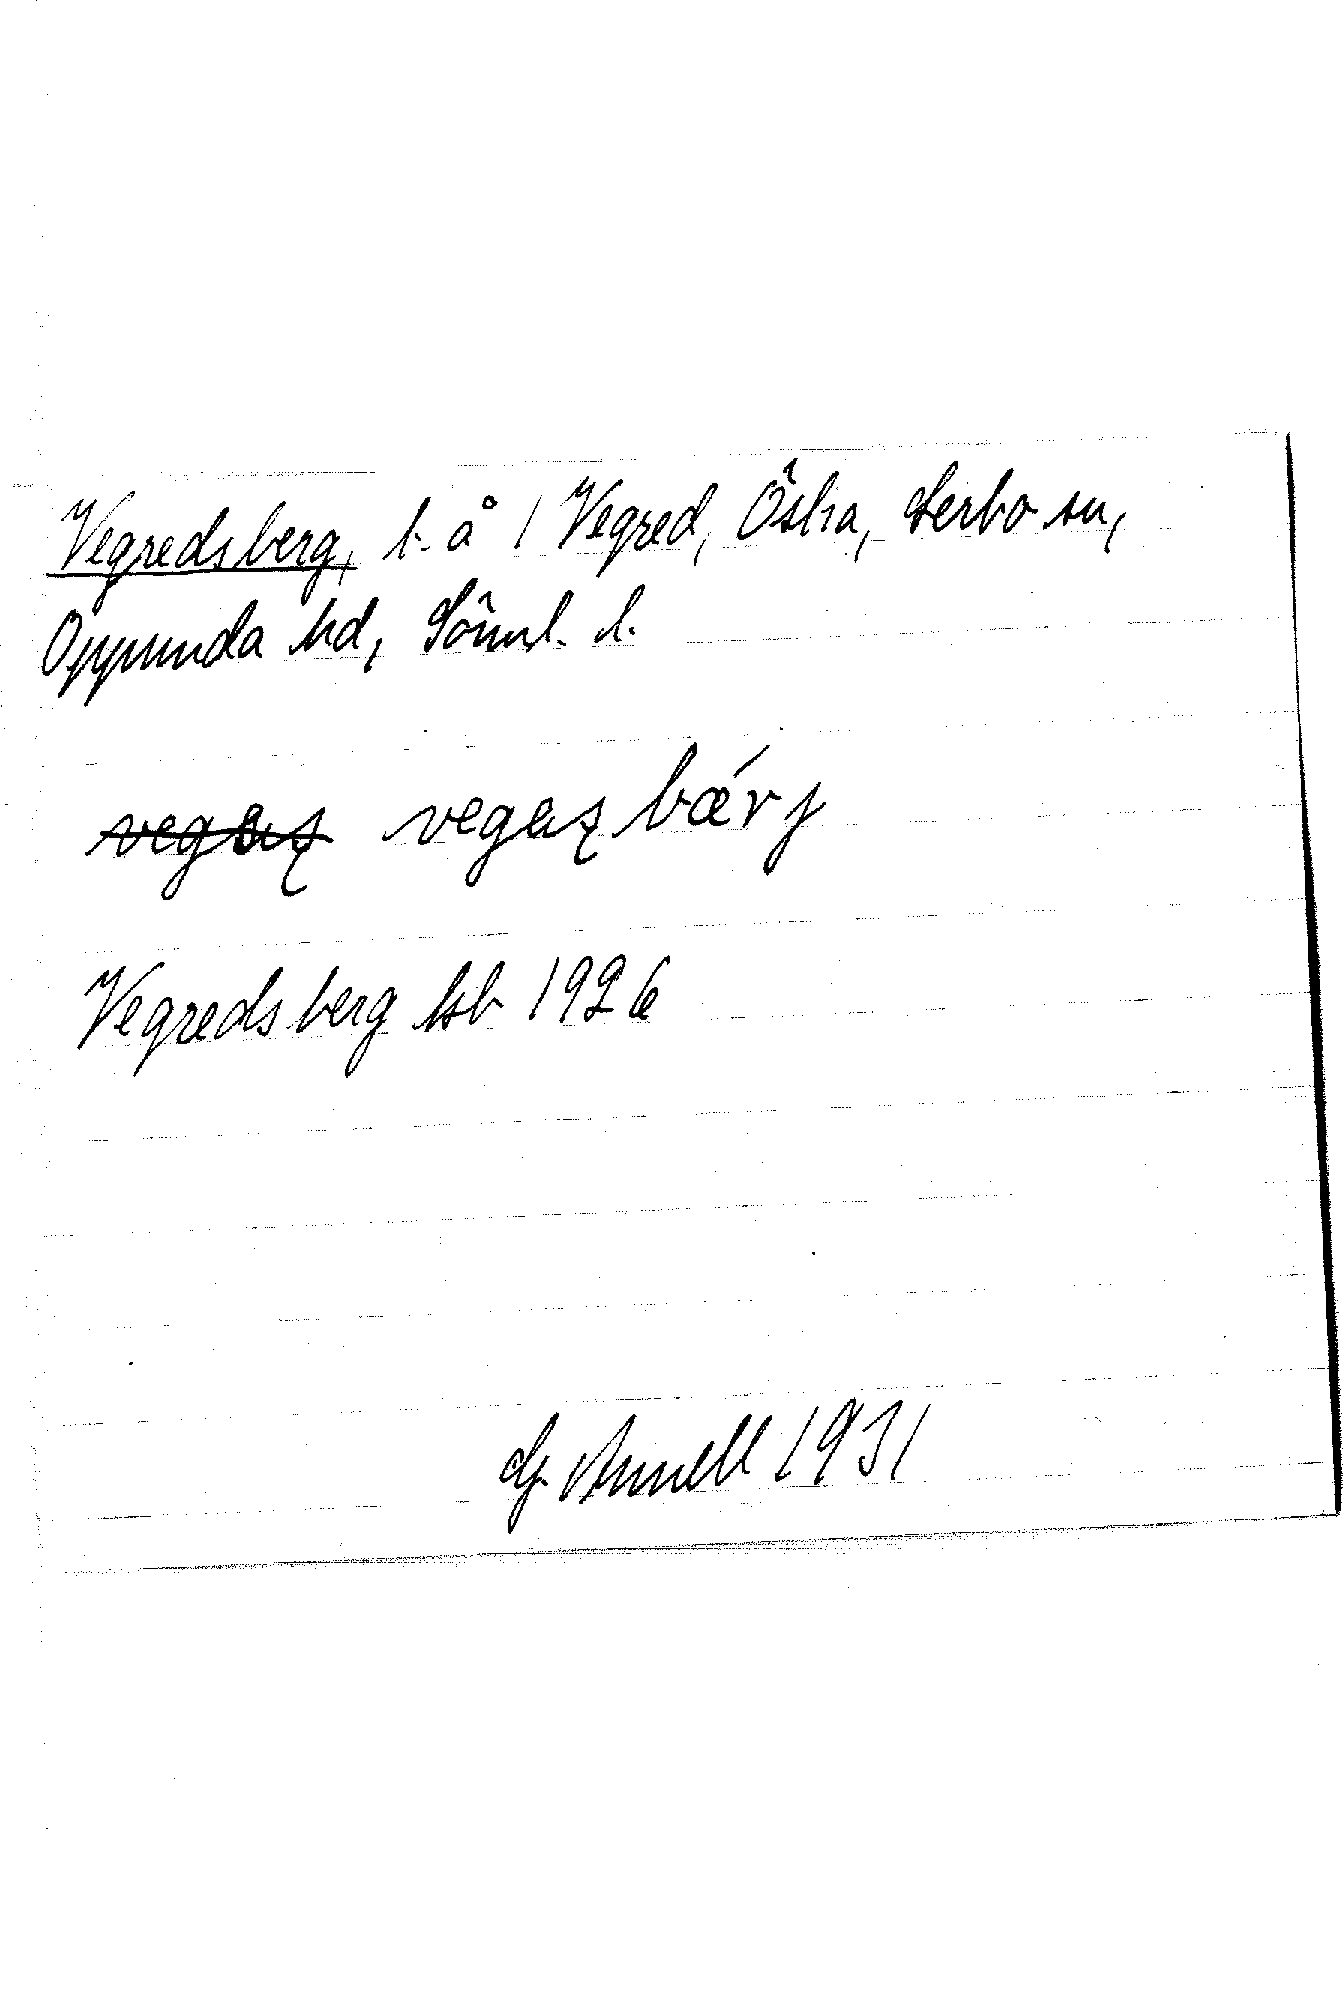 Vegredsberg, t. å 1 Vegred, Östra, Lerbo sn,
Oppunda hd, Söml. l.
vegaʂbǽrj
Vegredsberg hsb 1926
G. Annell 1931